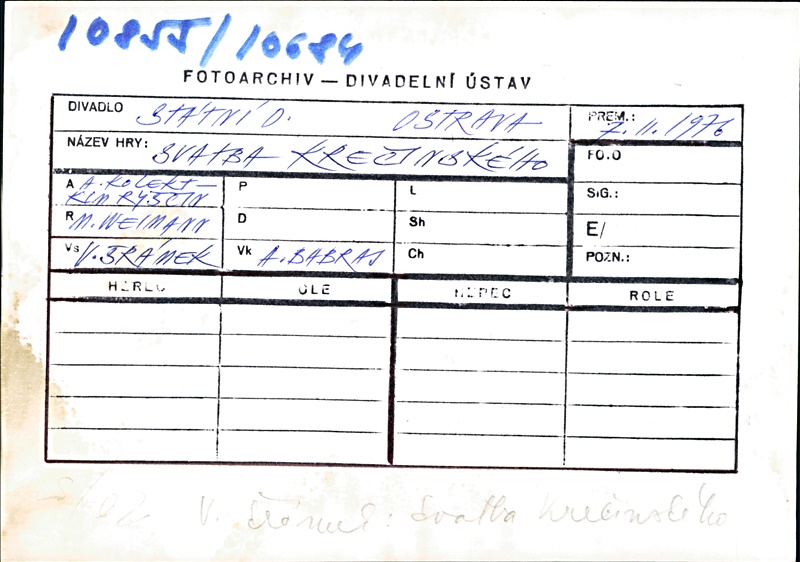 10855/10684
FOTOARCHIV — DIVADELNÍ ÚSTAV
DIVADLO STÁTNÍ D. OSTRAVA PREM.: 7. 11. 1976
NÁZEV HRY: SVATBA KREČINSKÉHO FO.O
A A. KOLEKT— P L SIG.:
KLM RYŠČIN
R M. WEIMANN D Sh E/
Vs V. ŠRÁMEK Vk A. BABRAJ Ch POZN.:
HEREC OLE HEPEC ROLE
V. Šrámek: Svatba Krečinského